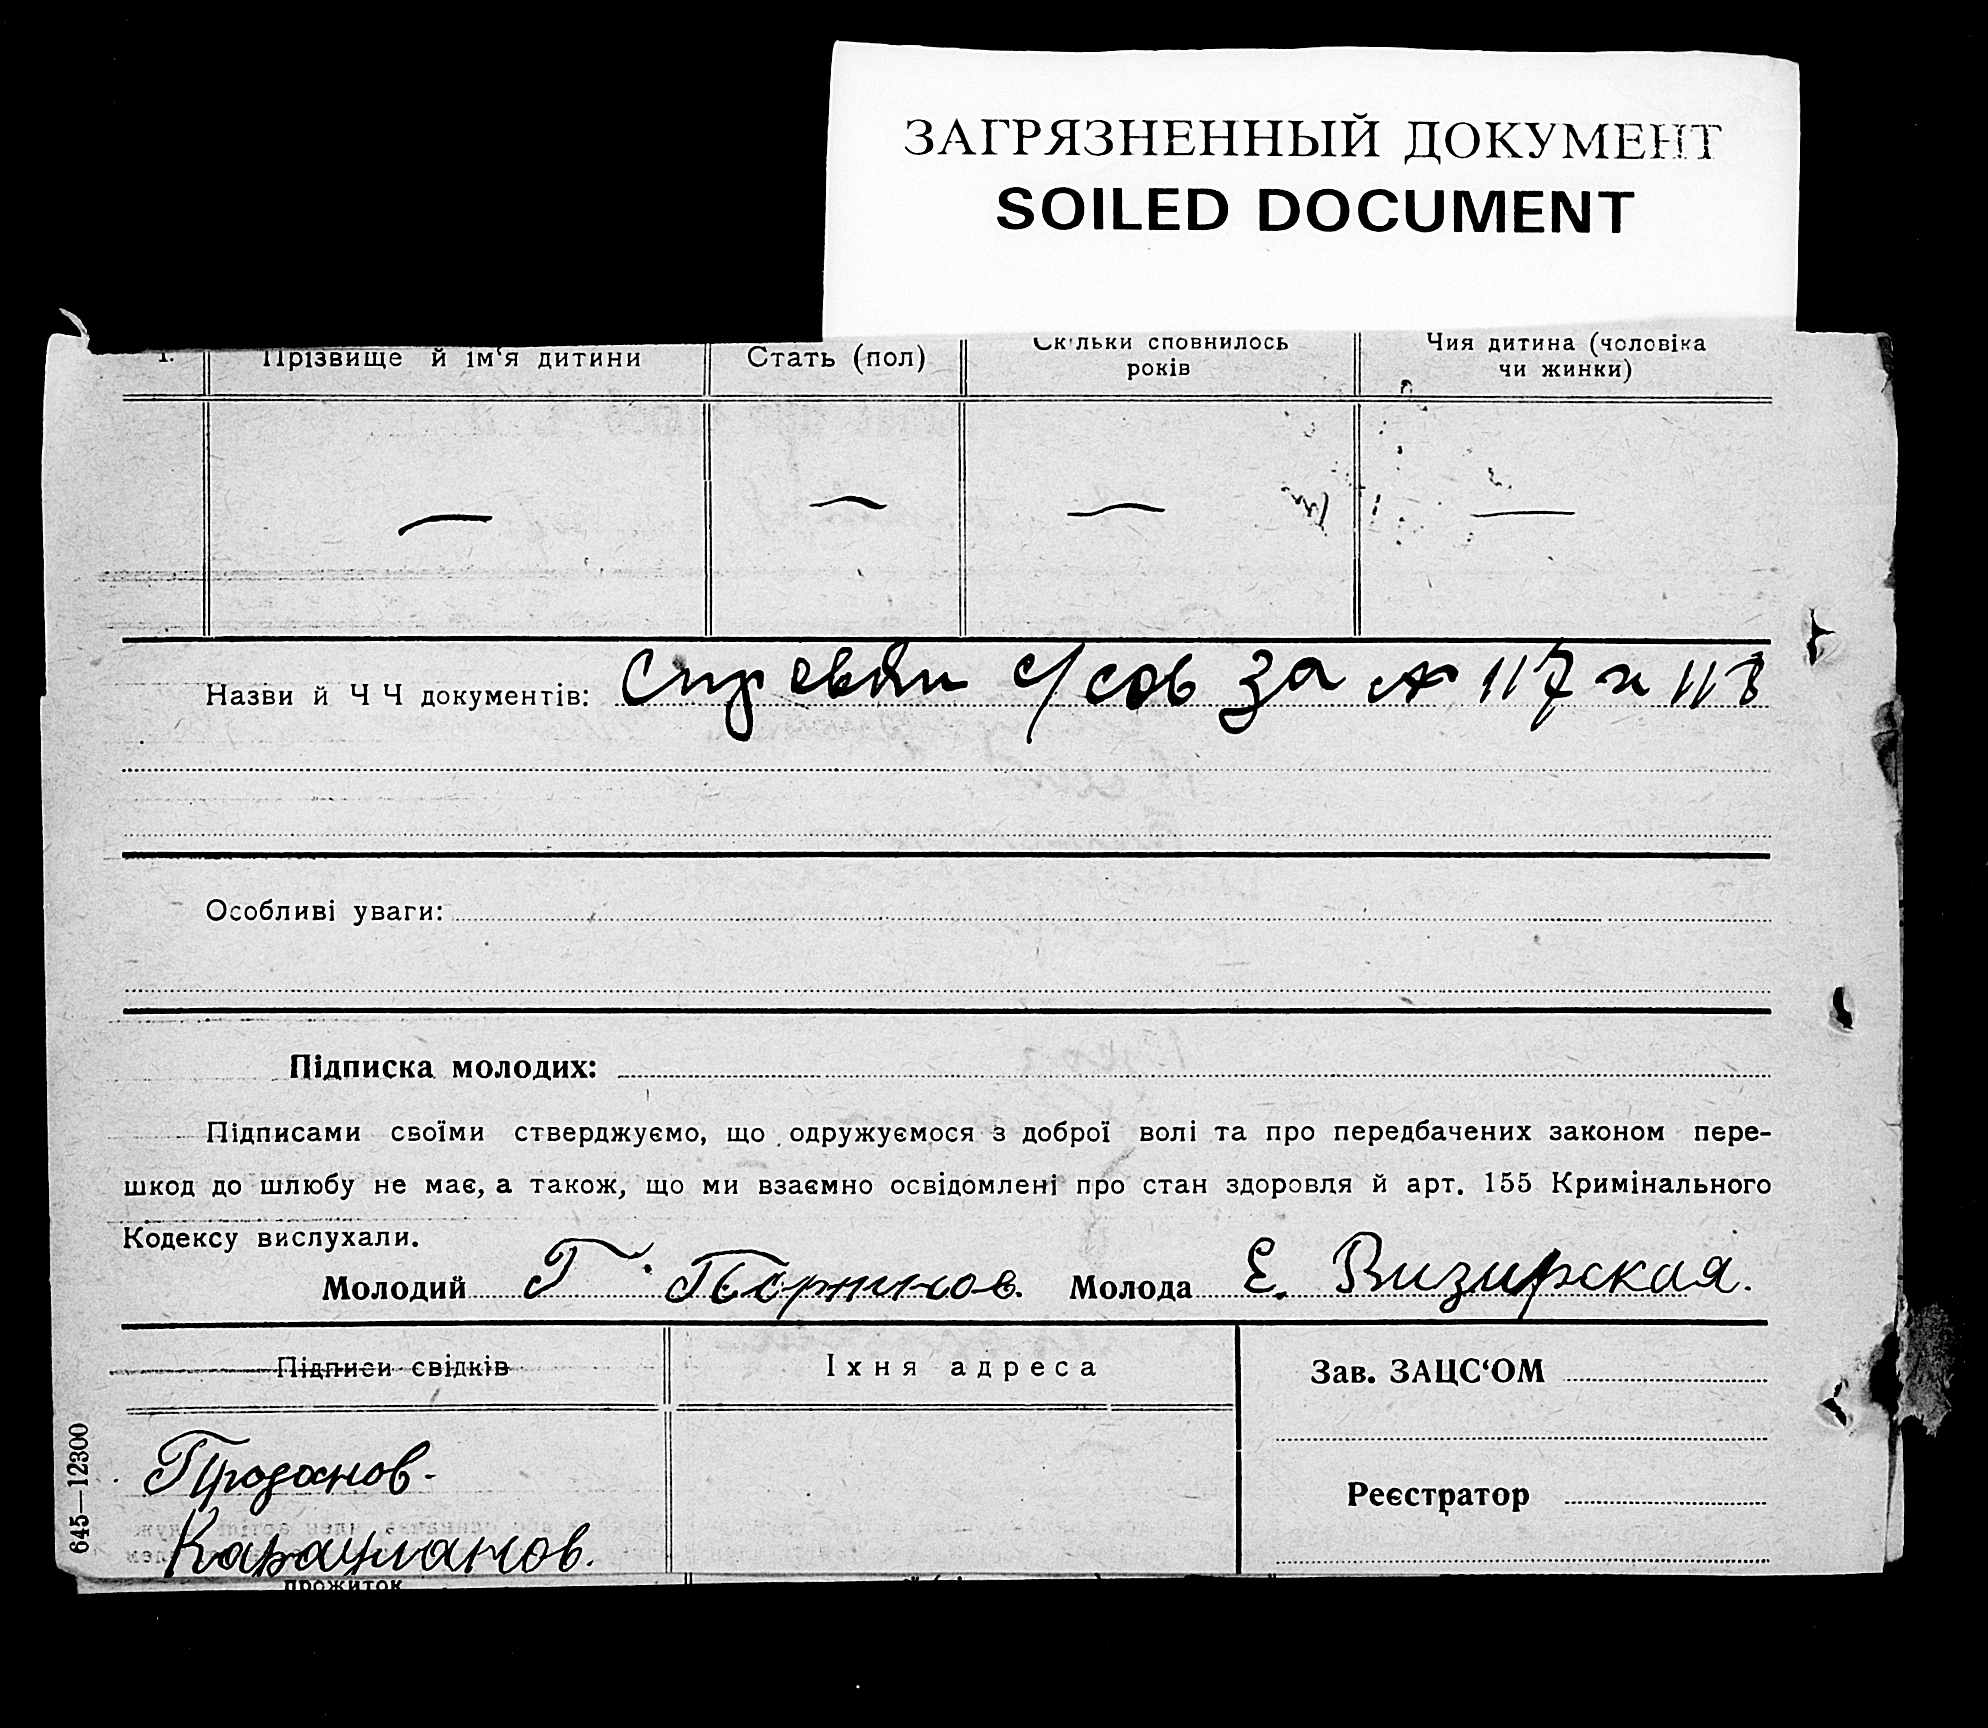 ЗАГРЯЗНЕННЫЙ ДОКУМЕНТ
SOILED DOCUMENT
Прізвище й ім‘я дитини
Стать (пол)
Скільки сповнилось
років
Чия дитина (чоловіка
чи жинки)
Назви й Ч Ч документів: с/сов за № 117 и 118
Особливі уваги:
Підписка молодих:
Підписами своїми стверджуємо, що одружуємося з доброї волі та про передбачених законом пере-
шкод до шлюбу не має, а також, що ми взаємно освідомлені про стан здоровля й арт. 155 Кримінального
Кодексу вислухали.
Молодий Г. Молода Е. Визирская.
Підписи свідків
Їхня адреса
Зав. ЗАЦС‘ОМ
Проданов
Реєстратор
Карауланов.
645—12300
прожиток